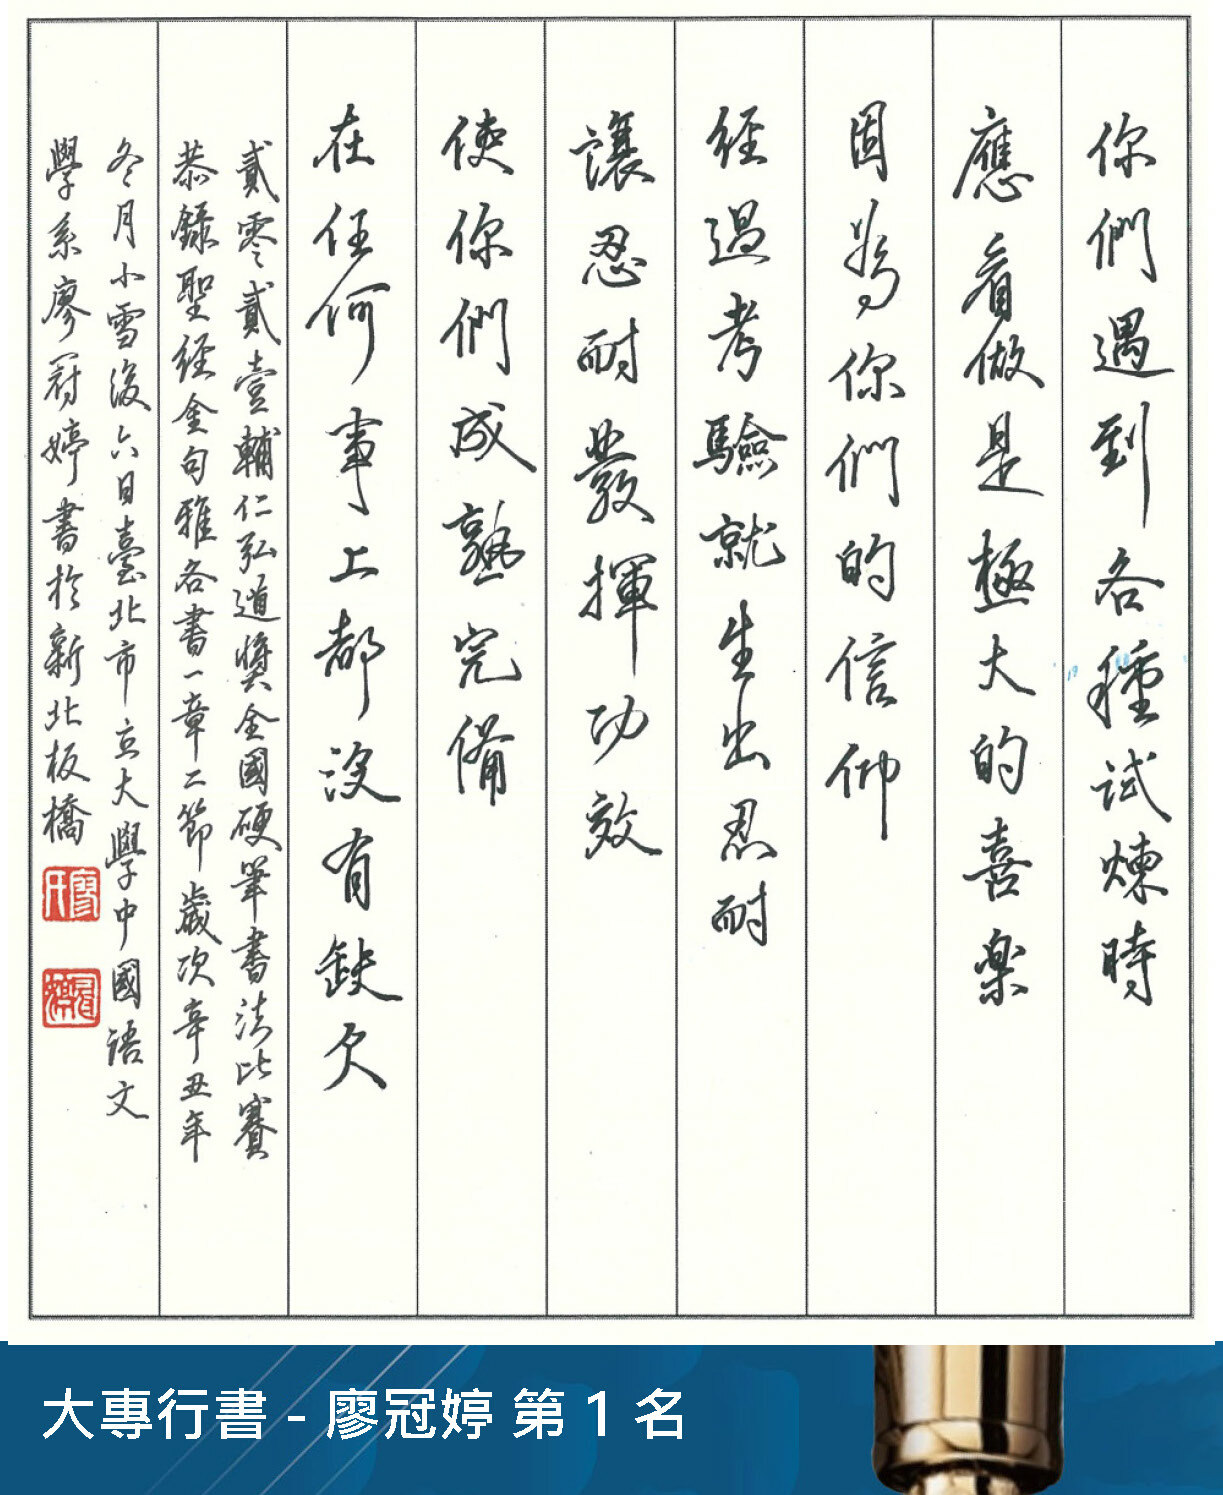 你們遇到各種試煉時
應看做是極大的喜樂
因為你們的信仰
經過考驗就生出忍耐
讓忍耐發揮功效
使你們成熟完備
在任何事上都沒有缺欠
貳零貳壹輔仁弘道獎全國硬筆書法比賽
恭錄聖經金句雅各書一章二節歲次辛丑年
冬月小雪後六日臺北市立大學中國語文
學系廖冠婷書於新北板橋
廖氏
冠婷
大專行書 - 廖冠婷 第 1 名